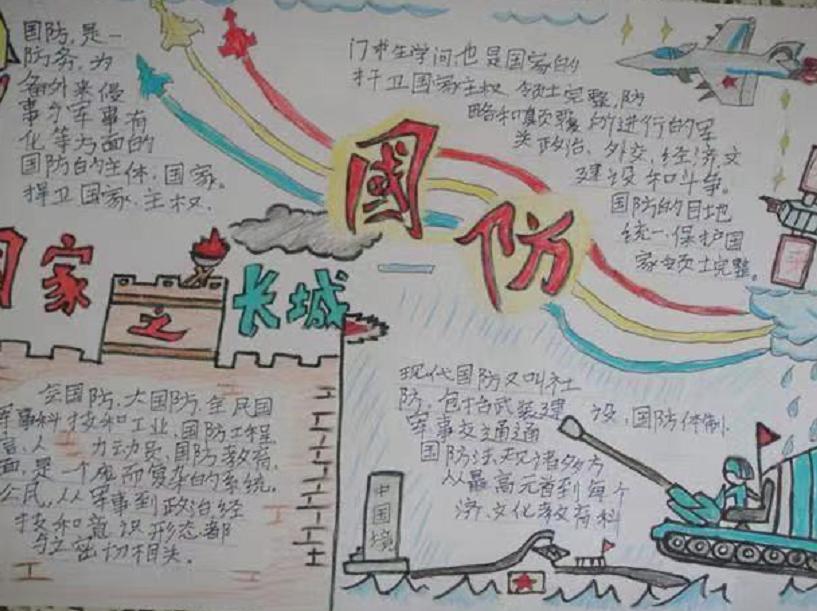 国防,是一
防务,为
备外来侵
事分军事有
化等方面的
国防的主体,国家。
捍卫国家,主权,
门术生学问也是国家的
捍卫国家主权、领土完整,防
略和颠覆所进行的军
关政治、外交、经济、文
建设和斗争。
国防的目地
统一,保护国
家领土完整。
國
防
家
之
长城
全国防,大国防,全民国
军事科技和工业,国防工程
官,人 力动员,国防教育,
面,是一个庞而复杂的系统,
公民,从军事到政治经
技和意识形态,都
与之密切相关。
现代国防又叫社
防,包括武装建 设,国防体制,
军事交通通
国防法规诸多方
从最高元首到每个
济,文化教育科
中国境